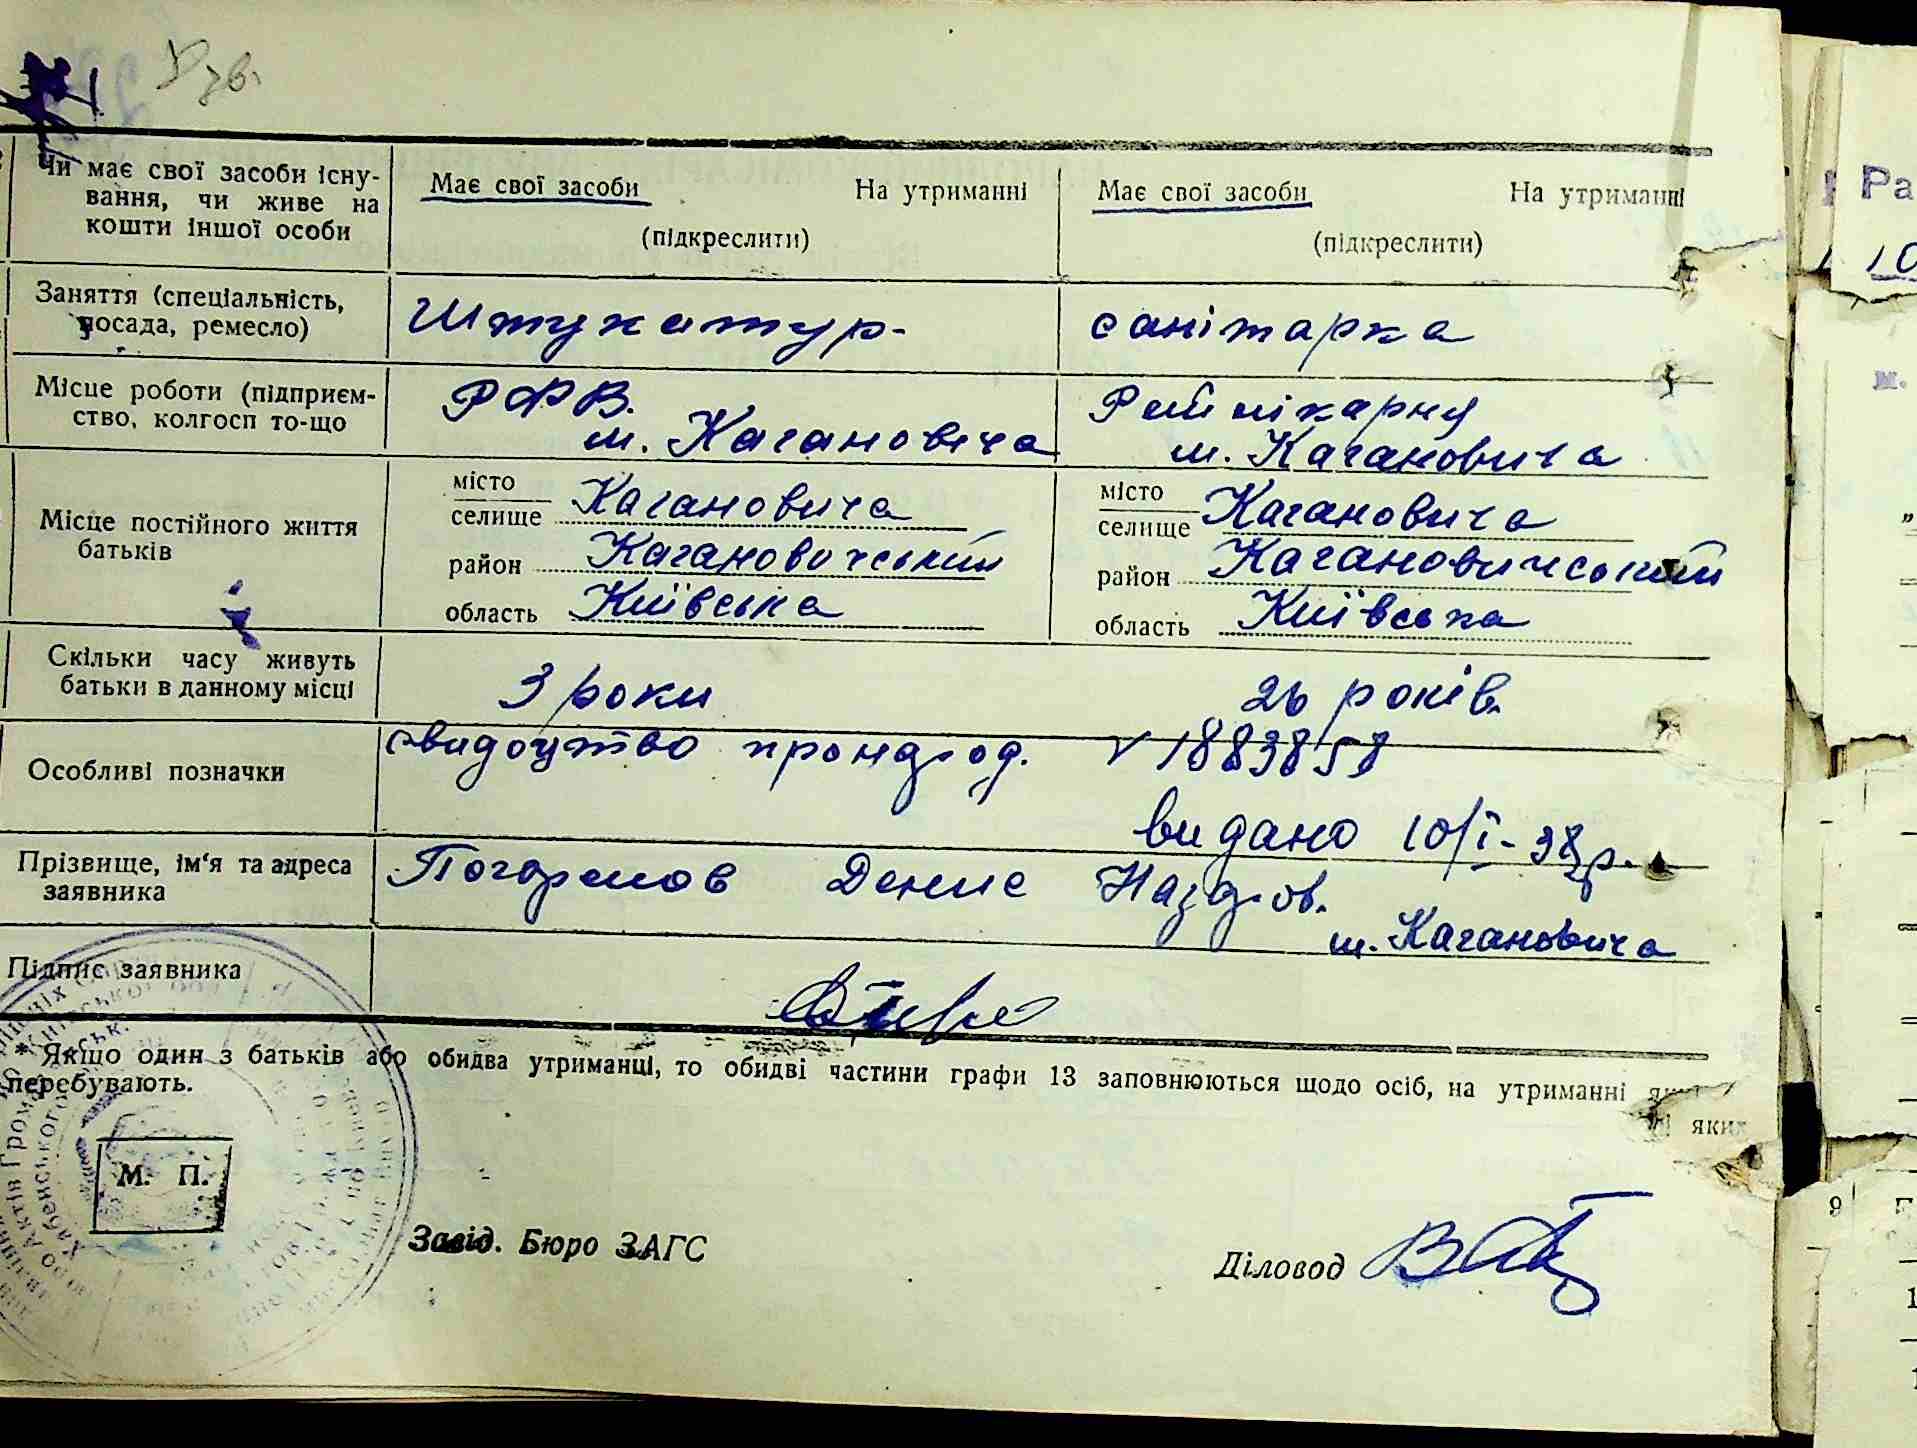 Чи має свої засоби існу-
вання, чи живе на
кошти іншої особи
Має свої засоби На утриманні
(підкреслити)
Має свої засоби На утриманні
(підкреслити)
Заняття (спеціальність,
посада, ремесло)
Штукатур-
санітарка
Місце роботи (підприєм-
ство, колгосп то-що
РФВ.
м. Кагановича
Райлікарня
м. Кагановича
Місце постійного життя
батьків
місто
селище Кагановича
район Кагановичський
область Київська
місто
селище Кагановича
район Кагановичський
область Київська
Скільки часу живуть
батьки в данному місці
3 роки
26 років.
Особливі позначки
свидоцтво V 1883858
видано 10/I-38р.
Прізвище, ім'я та адреса
заявника
Денис
м. Кагановича
Підпис заявника
* Якщо один з батьків або обидва утриманці, то обидві частини графи 13 заповнюються щодо осіб, на утриманні
яких
перебувають.
М. П.
Завід. Бюро ЗАГС
Діловод
Ра
10
м.
9